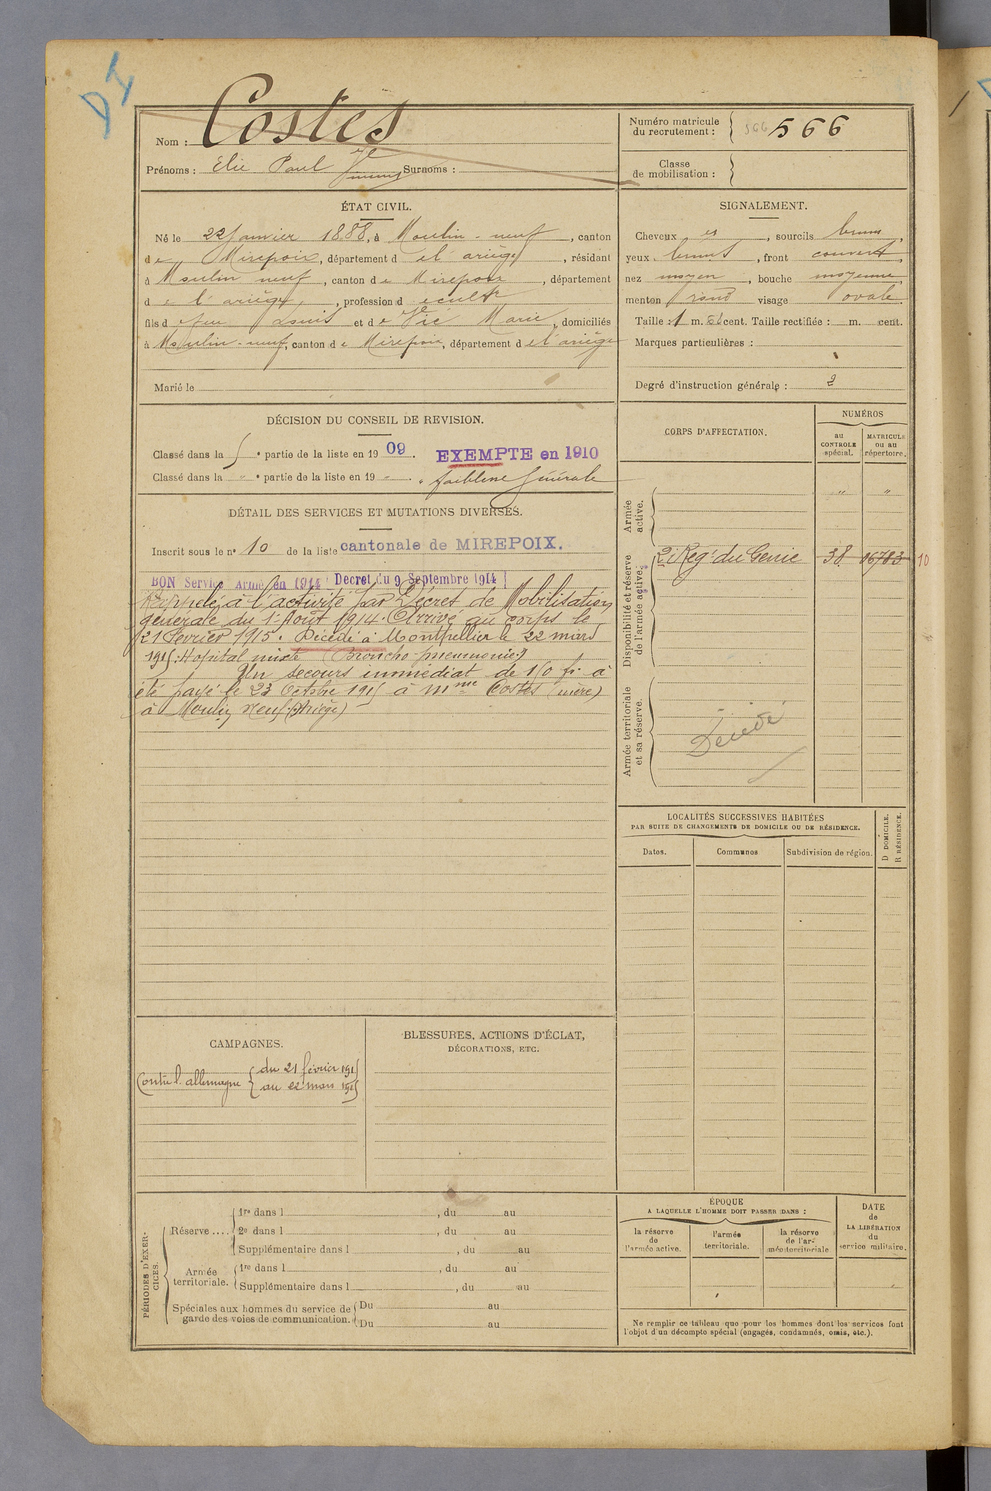 DI
Nom : Costes
Prénoms : Elie Paul Surnoms :
Numéro matricule du recrutement : 566 566
Classe de mobilisation :
ÉTAT CIVIL.
Né le 22 Janvier 1888, à Moulin-neuf, canton
de Mirepoix, département de l'ariège, résidant
à Moulin neuf, canton de Mirepoix, département
de l'ariège, profession d
fils de feu Louis et de Vié Marie, domiciliés
à Moulin-neuf, canton de Mirepoix, département de l'ariège
Marié le
SIGNALEMENT.
Cheveux , sourcils bruns,
yeux bruns, front couvert,
nez moyen, bouche moyenne,
menton rond visage ovale.
Taille : 1 m. cent. Taille rectifiée : m. cent.
Marques particulières :
Degré d'instruction générale : 2
DÉCISION DU CONSEIL DE REVISION.
Classé dans la 5e partie de la liste en 1909. EXEMPTE en 1910
Classé dans la " e partie de la liste en 19 " . faiblesse générale
DÉTAIL DES SERVICES ET MUTATIONS DIVERSES.
Inscrit sous le n° 10 de la liste cantonale de MIREPOIX.
BON Service Armé en 1914 Décret du 9 Septembre 1914
Rappelé à l'activité par Décret de Mobilisation
générale du 1er Août 1914. Arrivé au corps le
21 février 1915. Décédé à Montpellier le 22 mars
1915. Hopital mixte (Broncho-pneumonie)
Un secours immédiat de 150 fr. a
été payé le 23 Octobre 1915 à Mme Costes (mère)
à Moulin Neuf (Ariège)
CORPS D'AFFECTATION.
NUMÉROS
au CONTROLE spécial.
MATRICULE ou au répertoire.
Armée active.
" "
Disponibilité et réserve de l'armée active.
2e Reg' du Genie 38 16783 10
Armée territoriale et sa réserve.
Décédé
LOCALITÉS SUCCESSIVES HABITÉES
PAR SUITE DE CHANGEMENTS DE DOMICILE OU DE RÉSIDENCE.
Dates. Communes Subdivision de région. D DOMICILE. R RÉSIDENCE.
CAMPAGNES.
Contre l'allemagne du 21 février 1915
au 22 mars 1915
BLESSURES, ACTIONS D'ÉCLAT,
DÉCORATIONS, ETC.
PÉRIODES D'EXERCICES.
Réserve....
1re dans l , du au
2e dans l du au
Supplémentaire dans l , du au
Armée territoriale.
1re dans l , du au
Supplémentaire dans l , du au
Spéciales aux hommes du service de garde des voies de communication.
Du au
Du au
ÉPOQUE
A LAQUELLE L'HOMME DOIT PASSER DANS :
la réserve de l'armée active.
l'armée territoriale.
la réserve de l'armée territoriale
DATE de LA LIBÉRATION du service militaire.
Ne remplir ce tableau que pour les hommes dont les services font
l'objet d'un décompte spécial (engagés, condamnés, omis, etc.).